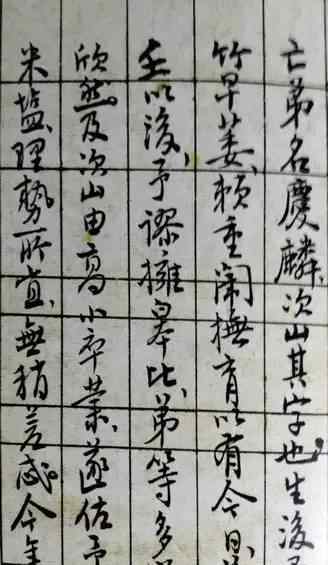 亡弟名慶麟、次山其字也、生後
竹早萎、賴重闈撫育、以有今日、
壬以後、予謬擁皋比、弟等多
欣然、及次山由高小卒業、遂佐予
米鹽、理勢所宜、無稍差忒、今年